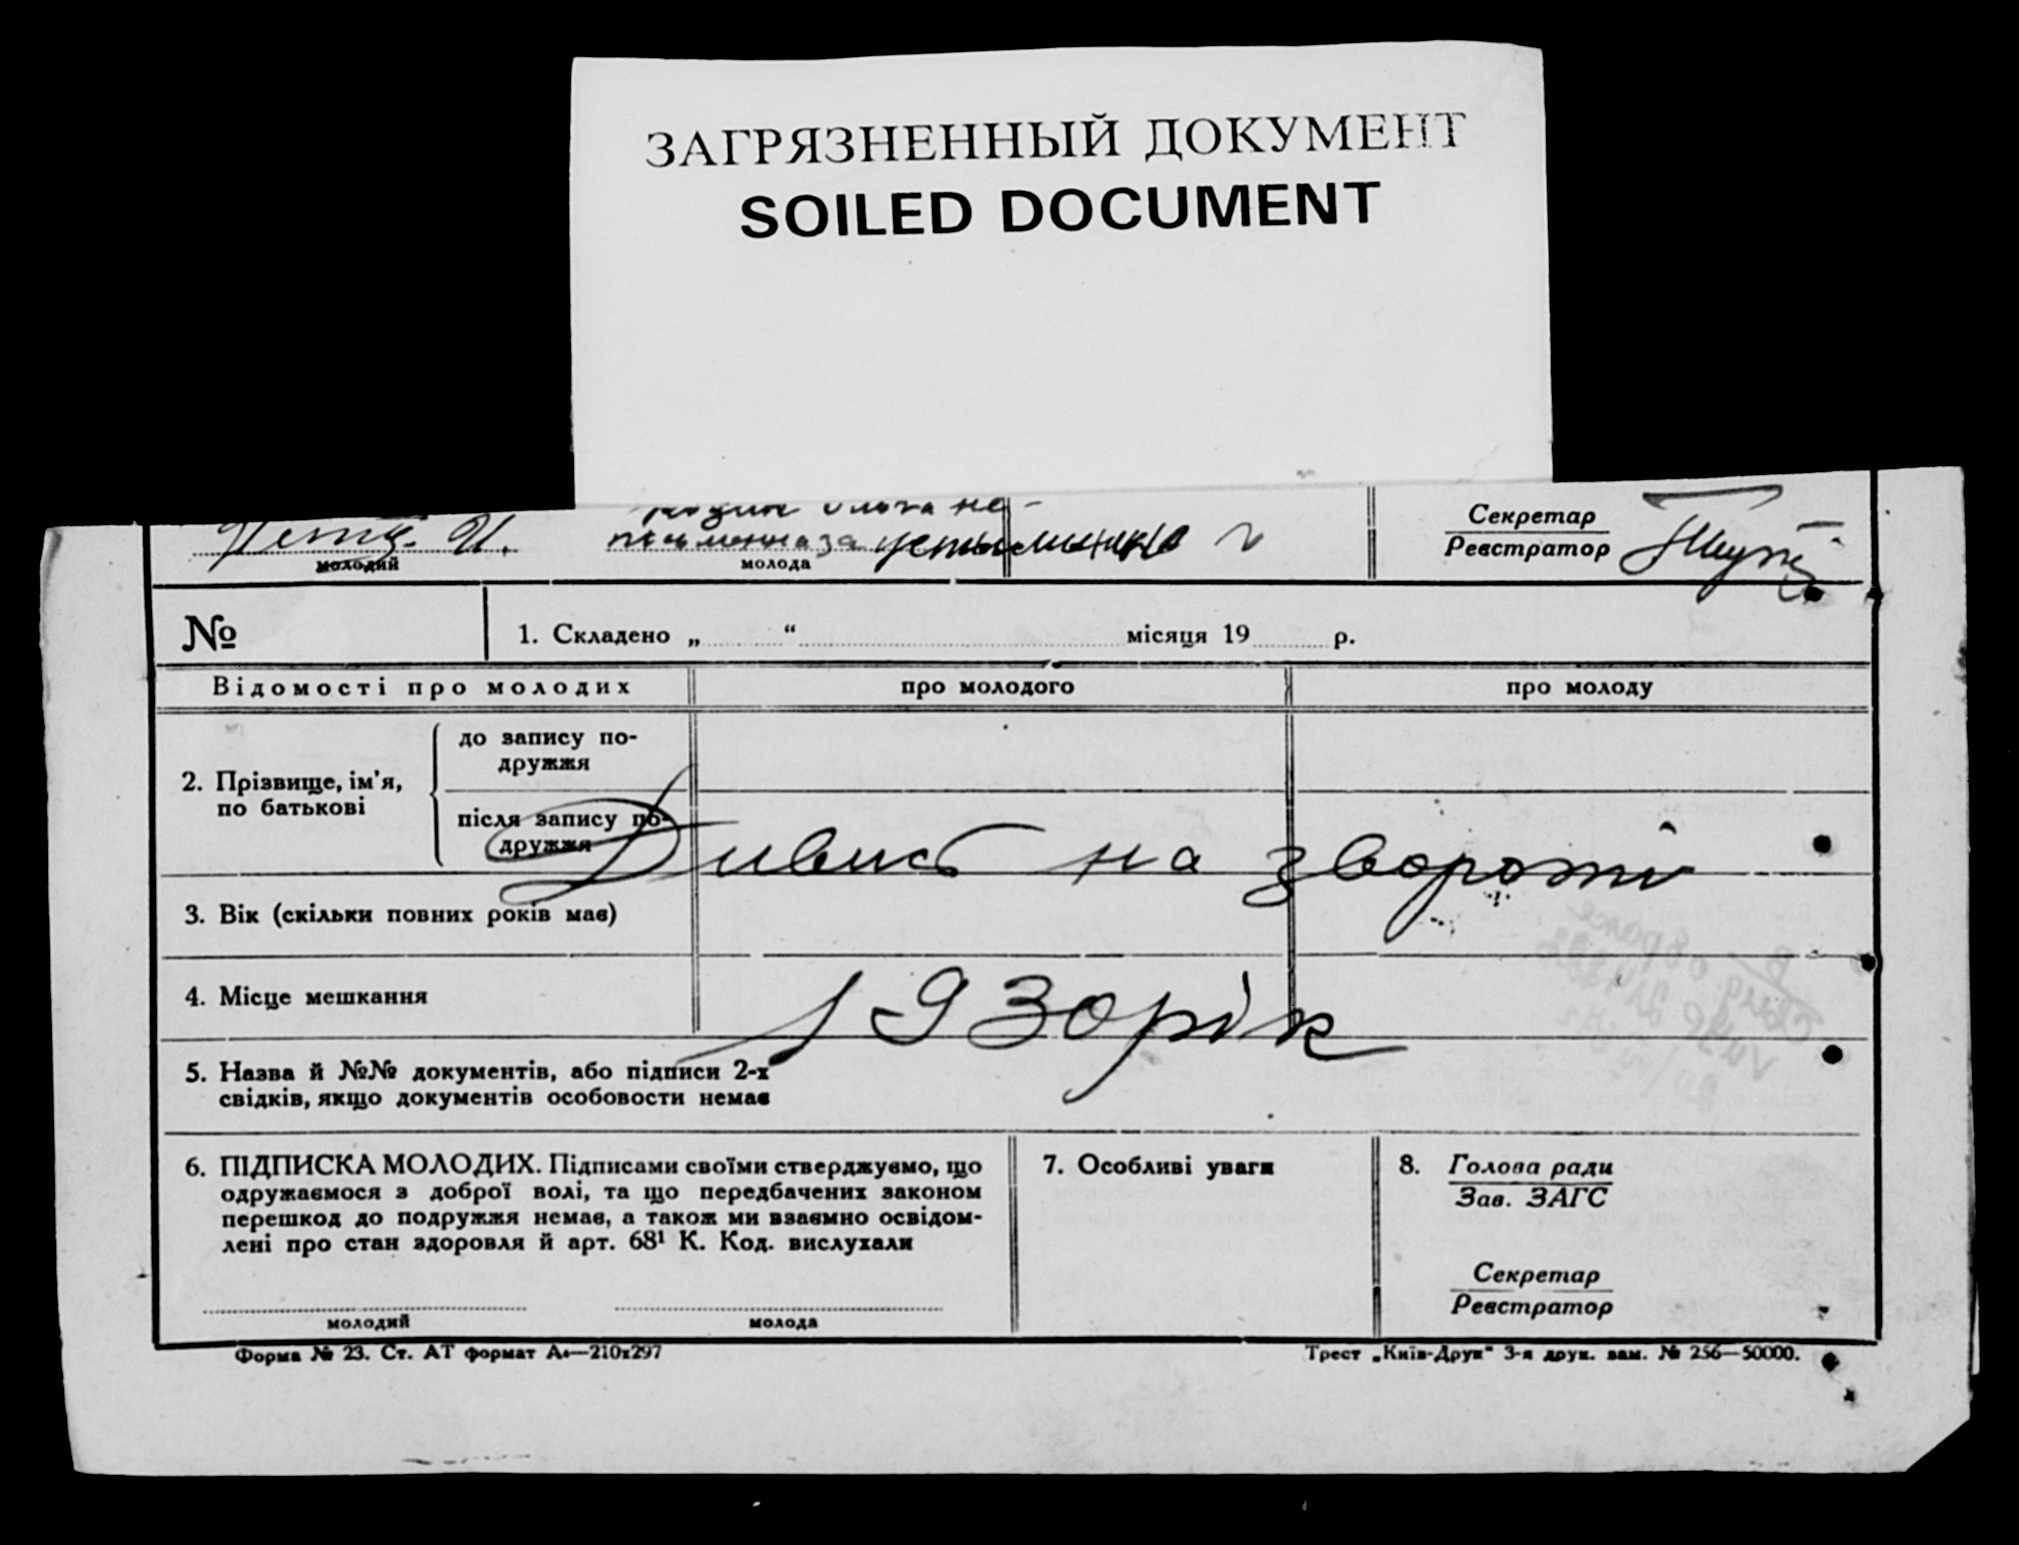 ЗАГРЯЗНЕННЫЙ ДОКУМЕНТ
SOILED DOCUMENT
Секретар
Реєстратор
молодий
молода
№
1. Складено „ “ місяця 19 р.
Відомості про молодих
про молодого
про молоду
2. Прізвище, ім'я,
по батькові
до запису по-
дружжя
після запису по-
дружжя
Дивись на звороті
3. Вік (скільки повних років має)
4. Місце мешкання
1930 рік
5. Назва й №№ документів, або підписи 2-х
свідків, якщо документів особовости немає
6. ПІДПИСКА МОЛОДИХ. Підписами своїми стверджуємо, що
одружаємося з доброї волі, та що передбачених законом
перешкод до подружжя немає, а також ми взаємно освідом-
лені про стан здоровля й арт. 68¹ К. Код. вислухали
молодий
молода
7. Особливі уваги
8. Голова ради
Зав. ЗАГС
Секретар
Реєстратор
Форма № 23. Ст. АТ формат А₄—210х297
Трест „Київ-Друк“ 3-я друк. зам. № 256—50000.